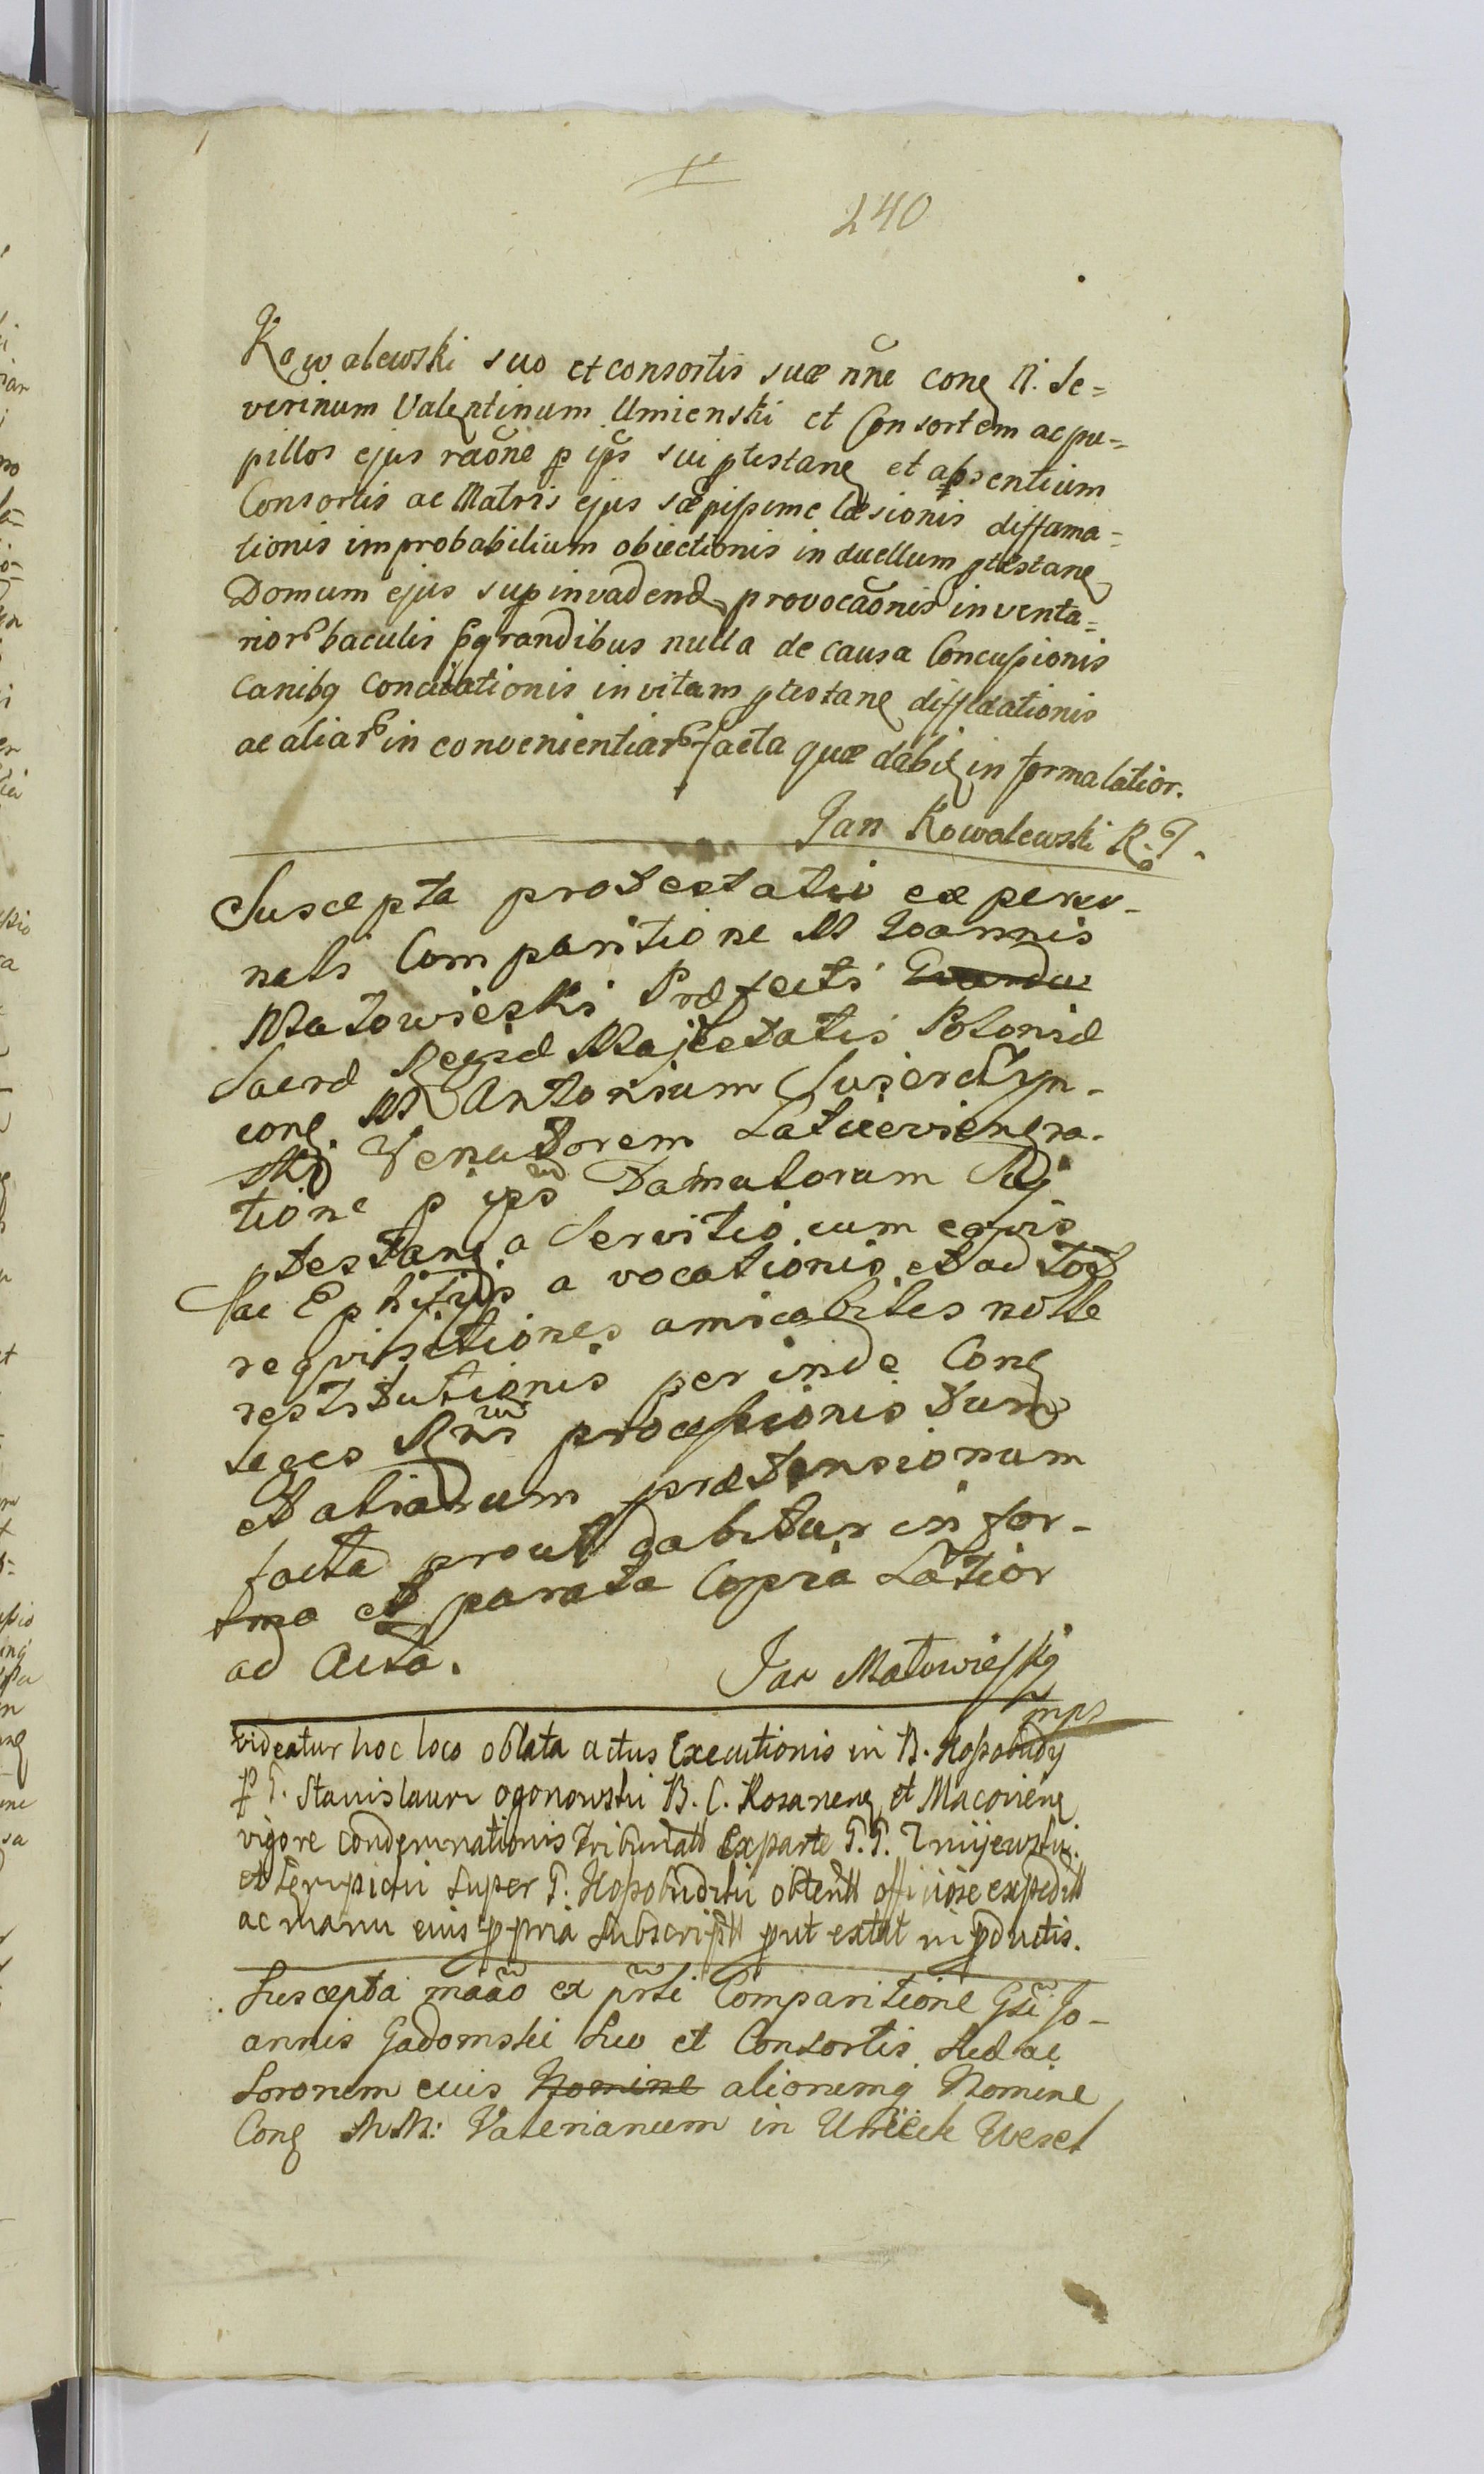 240
Kowalewski suo et consortis suæ nñe cong N. Se=
verinum Valentinum Umienski et Consortem ac pu=
pillos ejus raõne p ips sui ptestang et absentium
Consortis ac Matris ejus sæpissime læsionis diffama=
tionis improbabilium obiectionis in duellum ptestang
Domum ejus sup invadend provocaõnis inventa=
rior baculis pgrandibus nulla de causa Concussionis
canibq concitationis in vitam ptestang diffidationis
ac aliar in convenientiar facta quæ dabit in forma latior.
Jan Kowalewski R. P.
Suscepta protestatio ex perso-
nali Comparitione M Joannis
Matowieski Præfecti
Sacræ Regiæ Majestatis Poloniæ
cong. M Antonium
Venatorem ra-
tione p ips Famulorum
ptestang a Servitio cum equis
ac a vocationis et ad
requisitiones amicabiles nolle
restitutionis per inde Cong
leges Rni processionis tum
et aliarum prætensionum
facta prout dabitur in for-
ma et parata Copia Latior
ad Acta.
Jan Matowieski
mpr
videatur hoc loco oblata actus Executionis in B.
P. Stanislaum Ogonowski B. C. Rosaneng et Macovieng
vigore condemnationis Tribunalt Exparte P. P. Zmijewski
et super P. obtent officiose expedit
ac manu eius ppria subscript put extat in pductis.
Suscepta maão ex prsli Comparitione Gsi Jo-
annis Gadomski suo et Consortis suæ ac
Sororum euis Nomine aliorumq Nomine
Cong MM: Valerianum in Wesel